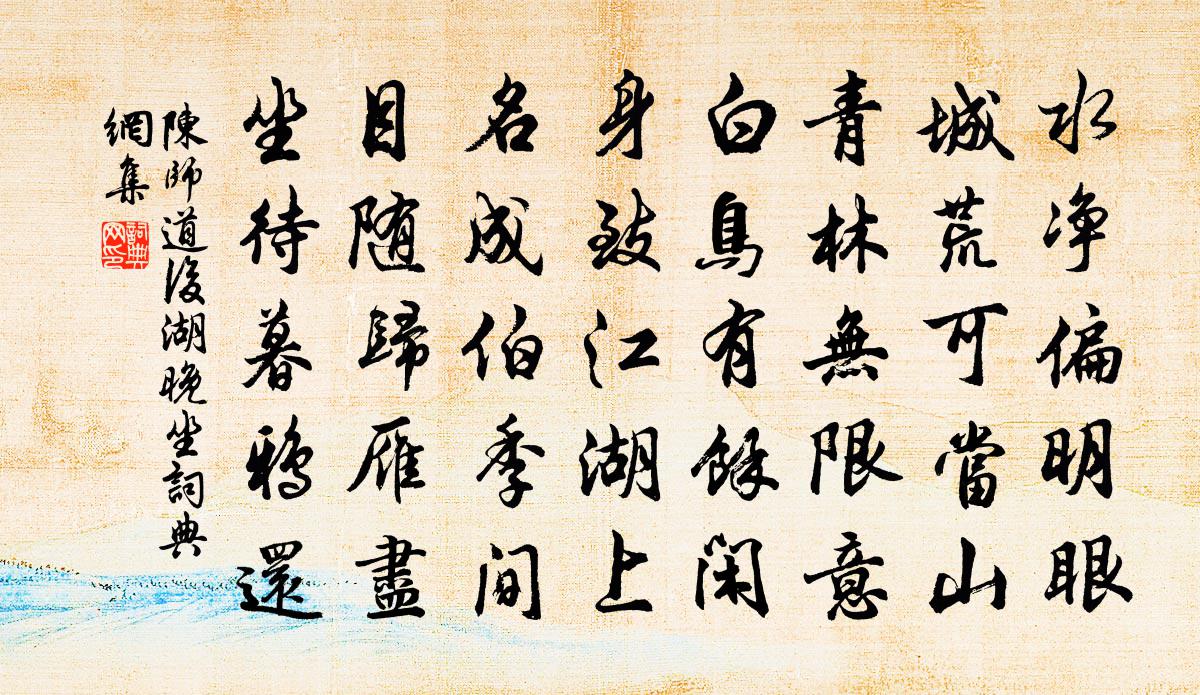 水净偏明眼
城荒可當山
青林無限意
白鳥有餘閑
身致江湖上
名成伯季间
目随歸雁盡
坐待暮鴉還
陳師道後湖晚坐詞典
網集
詞典
网印